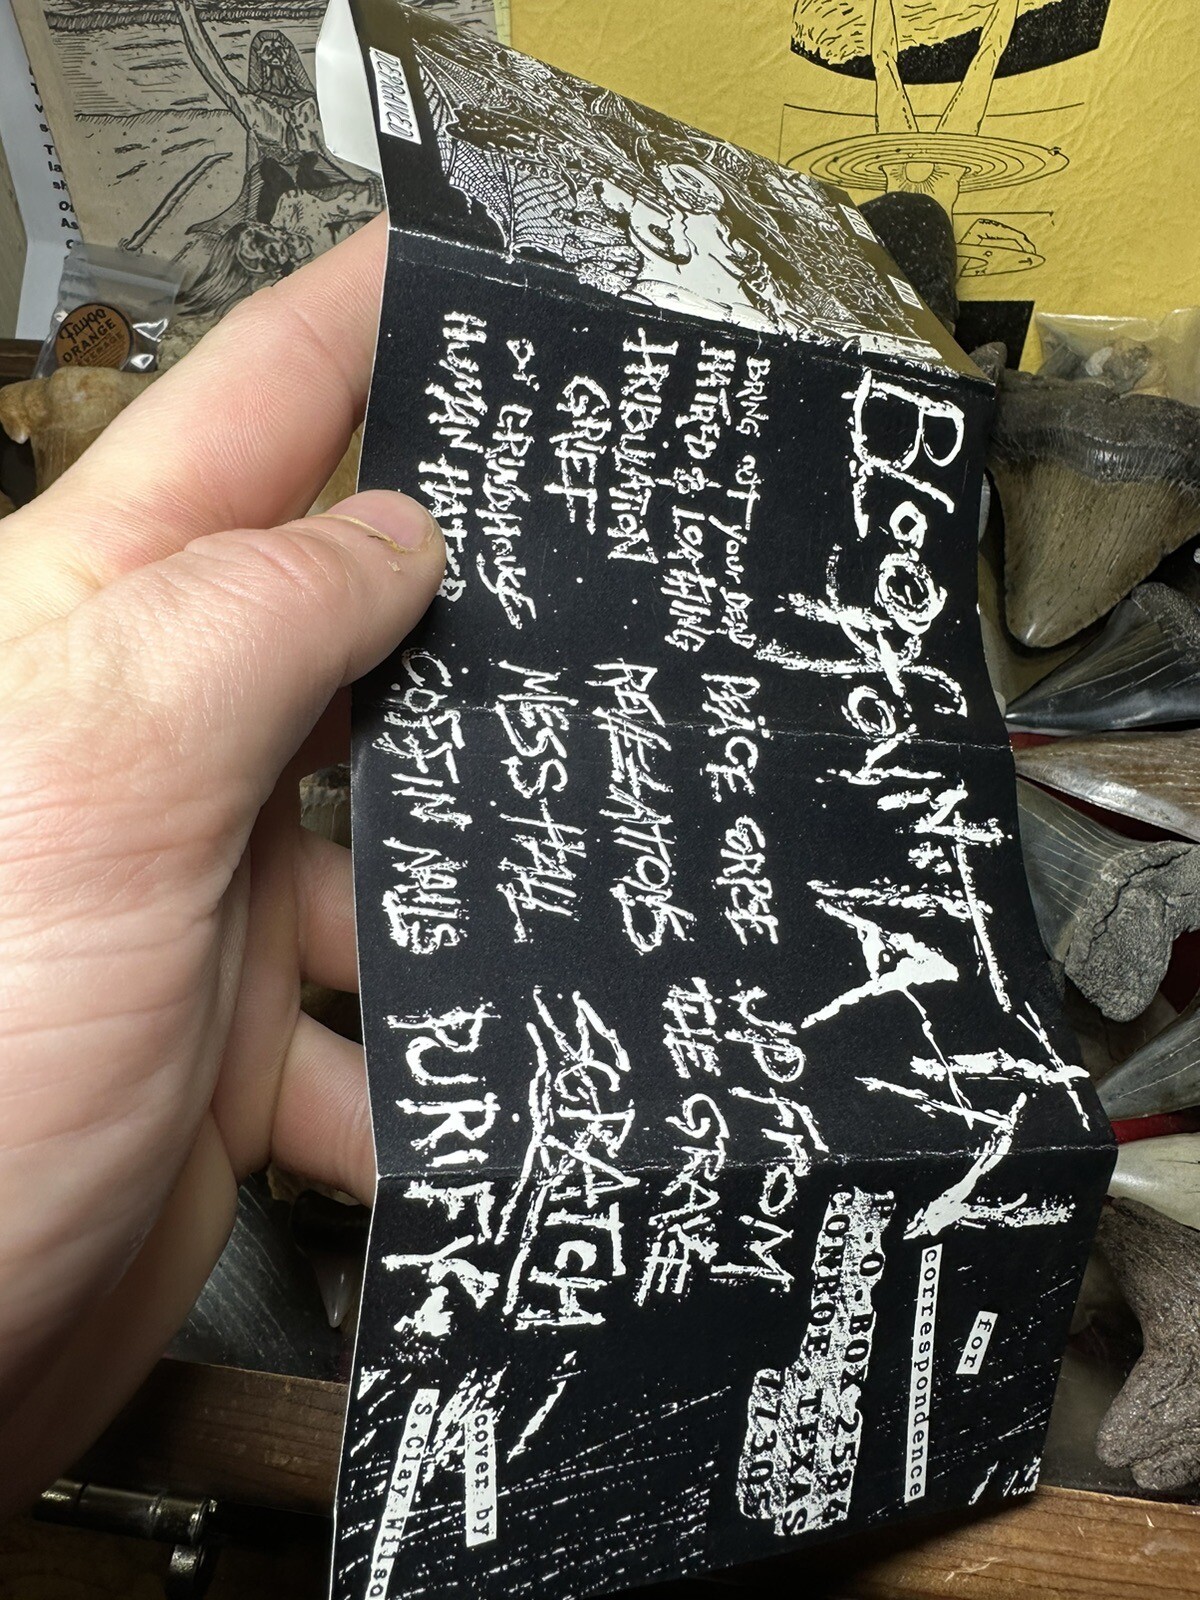 DEPRAVED
BLOODFOUNTAIN
BRING OUT YOUR DEAD
HATRED & LOATHING
TRIBULATION
GRIEF
GRINDHOUSE
HUMAN HATRED
PEACE CORPSE
REVELATIONS
MESS HALL
COFFIN NAILS
UP FROM
THE GRAVE
SCRATCH
PURIFY
for
correspondence
P.O.BOX 2584
CONROE, TEXAS
77305
cover by
S.Clay Wilso
ORANGE